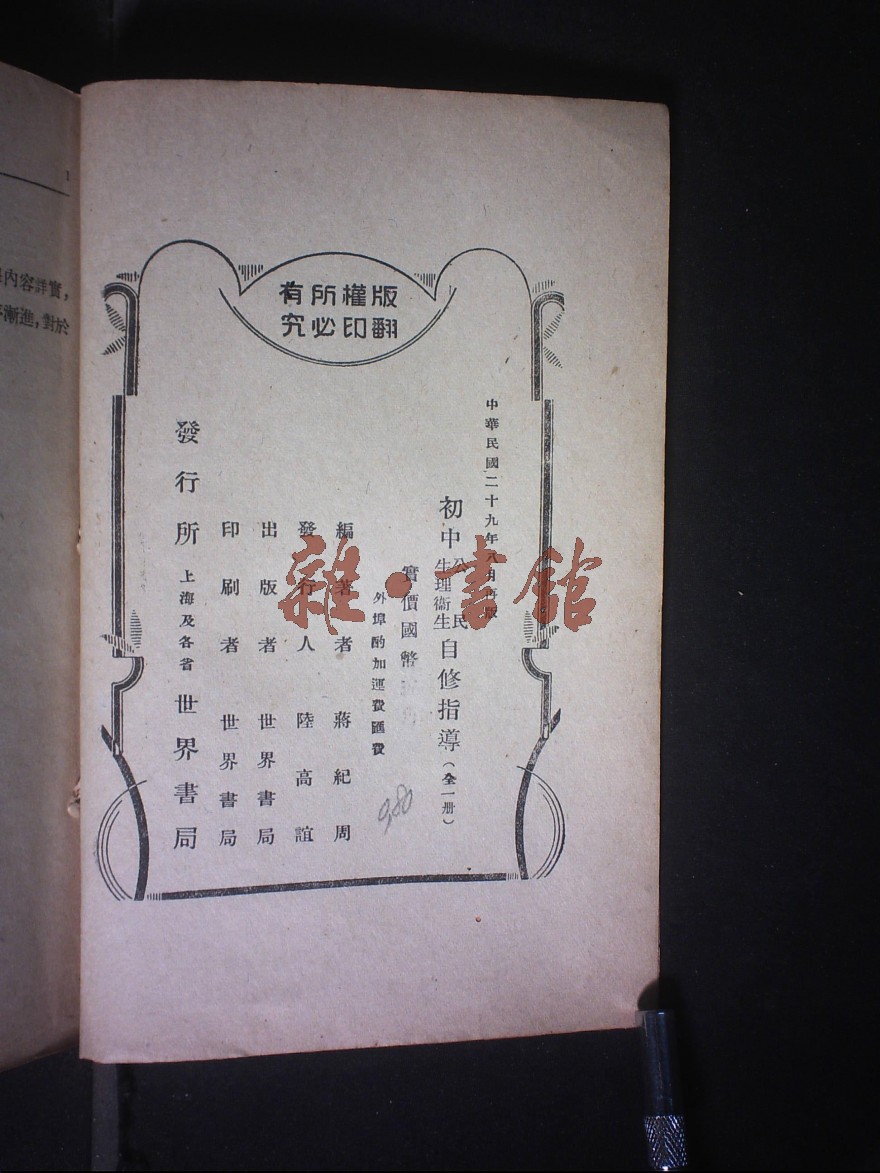 版權所有
翻印必究
中華民國二十九年八月再版
初中公民生理衞生自修指導（全一册）
實價國幣
外埠酌加運費匯費
9,80
編著者 蔣紀周
發行人 陸高誼
出版者 世界書局
印刷者 世界書局
發行所 上海及各省 世界書局
雜·書館
1
內容詳實，
漸進，對於